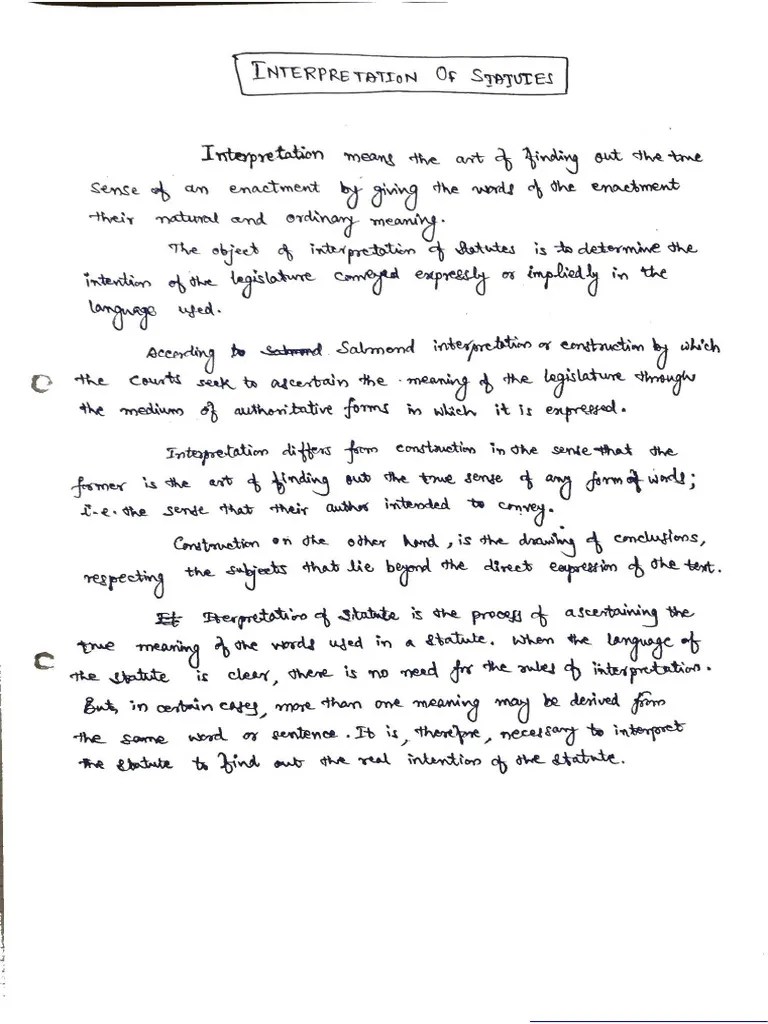 INTERPRETATION OF STATUTES
Interpretation means the art of finding out the true
sense of an enactment by giving the words of the enactment
their natural and ordinary meaning.
The object of interpretation of statutes is to determine the
intention of the legislature conveyed expressly or impliedly in the
language used.
According to Salmond Salmond interpretation or construction by which
the Courts seek to ascertain the meaning of the legislature through
the medium of authoritative forms in which it is expressed.
Interpretation differs from construction in the sense that the
former is the art of finding out the true sense of any form of words;
i.e. the sense that their author intended to convey.
Construction on the other hand, is the drawing of conclusions,
respecting the subjects that lie beyond the direct expression of the text.
It Iterpretation of Statute is the process of ascertaining the
true meaning of the words used in a statute. When the language of
the statute is clear, there is no need for the rules of interpretation.
But, in certain cases, more than one meaning may be derived from
the same word or sentence. It is, therefore, necessary to interpret
the statute to find out the real intention of the statute.